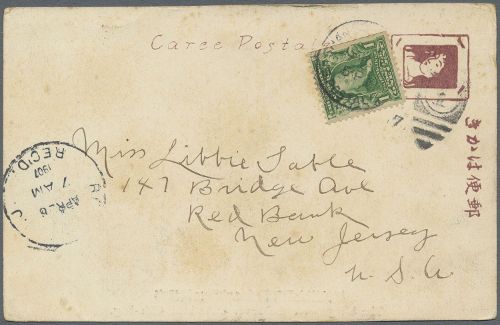 Carte Postale
きかは便郵
Miss Libbie Sable
147 Bridge Ave
Red Bank
New Jersey
U.S.A
REC'D
APR 8
7 AM
1907